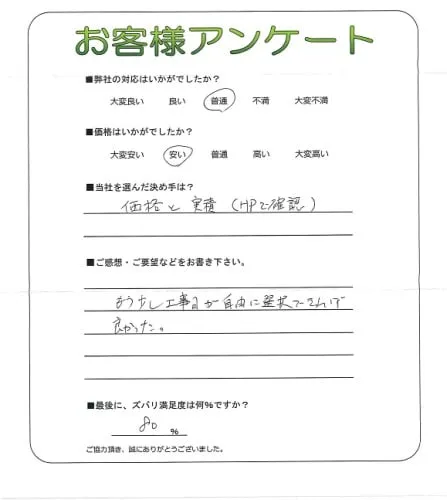 お客様アンケート
■弊社の対応はいかがでしたか？
大変良い 良い 普通 不満 大変不満
■価格はいかがでしたか？
大変安い 安い 普通 高い 大変高い
■当社を選んだ決め手は？
価格と実積（HPで確認）
■ご感想・ご要望などをお書き下さい。
もう少し工事日が自由に選択できれば
良かった。
■最後に、ズバリ満足度は何％ですか？
80 ％
ご協力頂き、誠にありがとうございました。